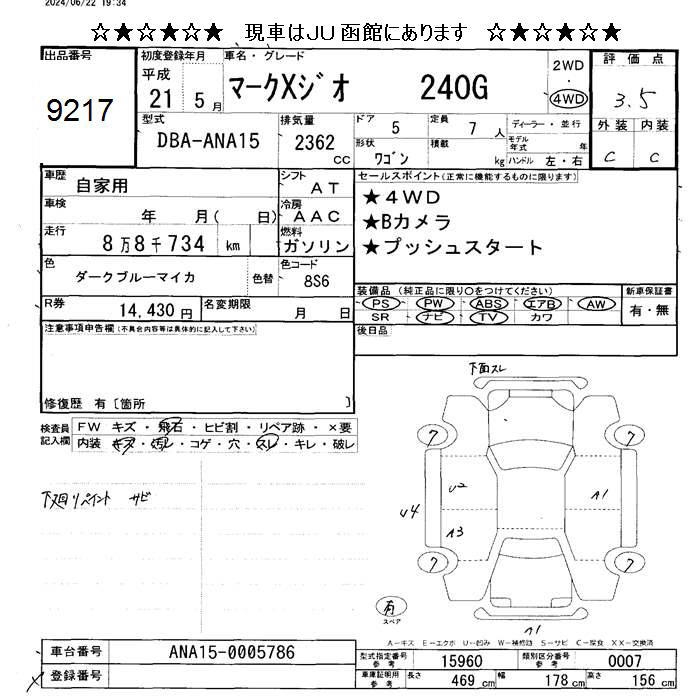 2024/06/22 19:34
☆★☆★☆★ 現車はJU函館にあります ☆★☆★☆★
出品番号 9217
初度登録年月 平成 21 5月
車名・グレード マークXジオ 240G
2WD 4WD
評価点 3.5
外装 内装
C C
型式 DBA-ANA15
排気量 2362 CC
ドア 5
定員 7 人
ディーラー・並行
形状 ワゴン
積載 kg
モデル年式 年
ハンドル 左・右
車歴 自家用
シフト AT
セールスポイント(正常に機能するものに限ります)
車検 年 月( 日)
冷房 AAC
★4WD
★Bカメラ
★プッシュスタート
走行 8万8千734 km
燃料 ガソリン
色 ダークブルーマイカ 色替
色コード 8S6
装備品 (純正品に限り○をつけてください)
新車保証書
PS PW ABS エアB AW
有・無
SR ナビ TV カワ
R券 14,430円
名変期限 月 日
後日品
注意事項申告欄(不具合内容等は具体的に記入して下さい)
修復歴 有〔箇所 〕
検査員記入欄
FW キズ・飛石・ヒビ割・リペア跡・×要
内装 キズ・汚レ・コゲ・穴・スレ・キレ・破レ
下廻リペイント サビ
下面スレ
7 7
U2 A1
U4
A3
7 7
有 スペア
A1
A-キズ E-エクボ U-凹み W-補修跡 S-サビ C-腐食 XX-交換済
車台番号 ANA15-0005786
登録番号
型式指定番号 参考 15960
類別区分番号 参考 0007
車庫証明用 参考 長さ 469cm 幅 178cm 高さ 156cm